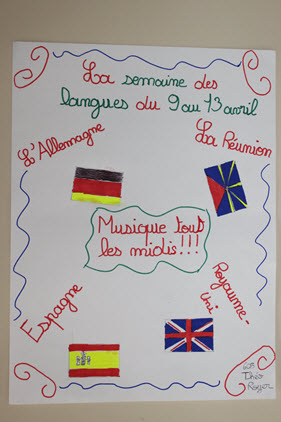 La semaine des
langues du 9 au 13 avril
L'Allemagne
La Réunion
Musique tout
les midis!!!
Espagne
Royaume-
Uni
Théo